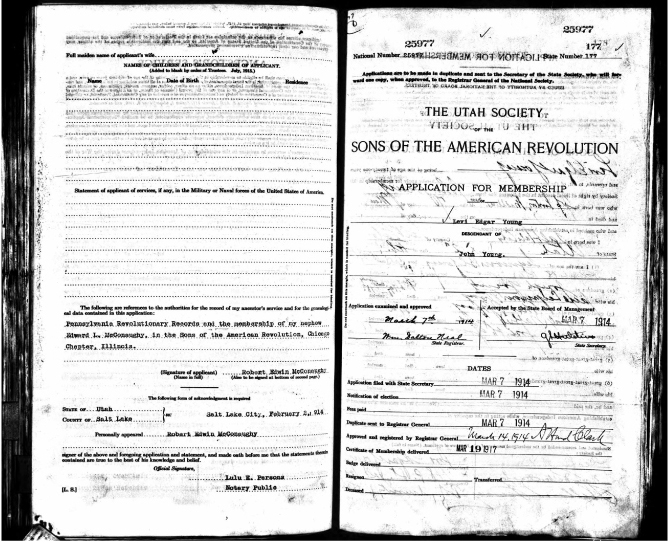 Full maiden name of applicant's wife
NAMES OF CHILDREN AND GRANDCHILDREN OF APPLICANT.
(Added to blank by order of Trustees. July, 1915.)
Name Date of Birth Residence
Statement of applicant of services, if any, in the Military or Naval forces of the United States of America.
The following are references to the authorities for the record of my ancestor's service and for the
data contained in this application:
Pennsylvania Revolutionary Records and the membership of my nephew
Edward L. McConaughy, in the Sons of the American Revolution, Chicago
Chapter, Illinois.
(Signature of applicant) Robert Edwin McConaughy
(Name in full) (Also to be signed at bottom of second page.)
The following form of acknowledgment is required
STATE OF Utah
COUNTY OF Salt Lake
ss: Salt Lake City, February 2, 914
Personally appeared Robert Edwin McConaughy
signer of the above and foregoing application and statement, and made oath before me that the statements therein
contained are true to the best of his knowledge and belief.
Official Signature,
Lulu E. Persons
[L. S.] Notary Public
25977
25977 177
National Number 25977 State Number 177
Applications are to be made in duplicate and sent to the Secretary of the State Society, who will for-
ward one copy, when approved, to the Registrar General of the National Society.
THE UTAH SOCIETY
OF THE
SONS OF THE AMERICAN REVOLUTION
APPLICATION FOR MEMBERSHIP
Levi Edgar Young
DESCENDANT OF
John Young.
Application examined and approved
March 7th 1914
State Registrar.
Accepted by the State Board of Management
MAR 7 1914
State Secretary.
DATES
Application filed with State Secretary MAR 7 1914
Notification of election MAR 7 1914
Fees paid
Duplicate sent to Registrar General MAR 7 1914
Approved and registered by Registrar General March 14, 1914 A Howard Clark
Certificate of Membership delivered MAR 19 917
Badge delivered
Resigned Transferred
Deceased